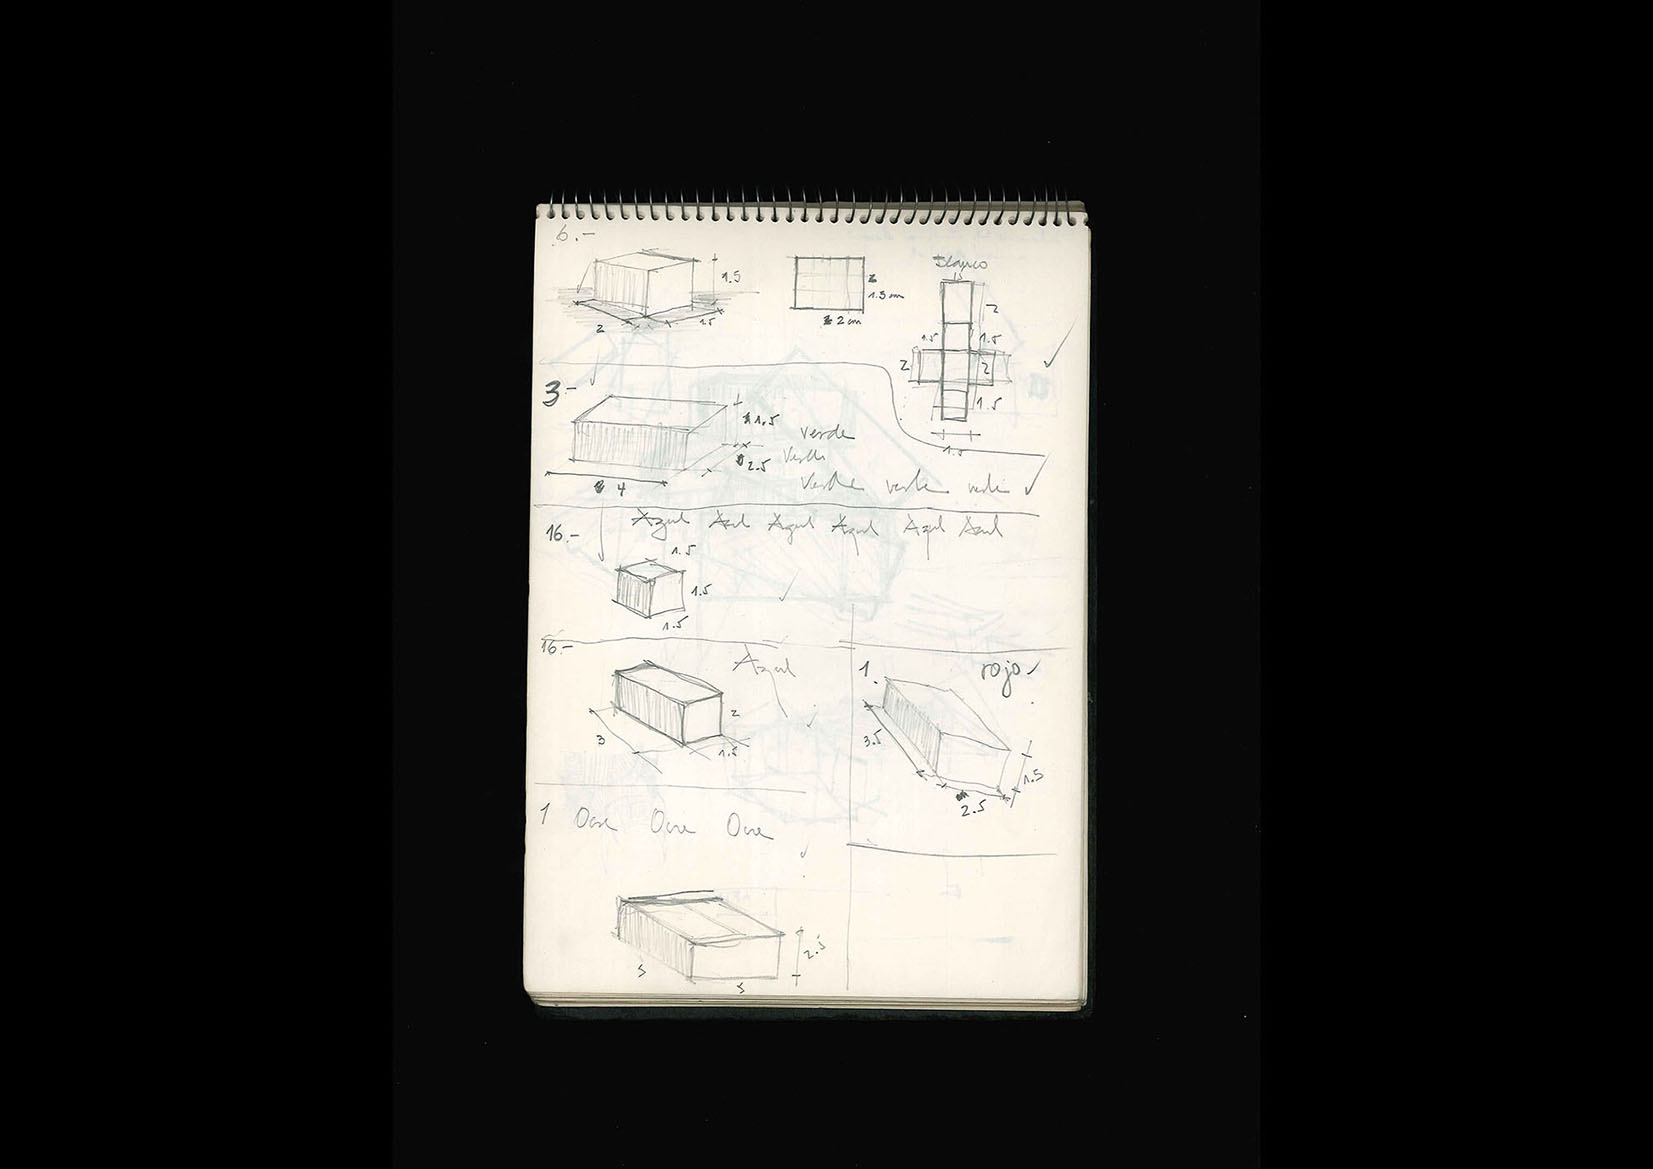 6.-
Blanco
1.5
1.5
2
1.5
2
1.5 cm
2 cm
2
1.5
1.5
1.5
2
2
1.5
1.5
3-
1.5
2.5
4
verde
Verde
Verde verde verde
Azul Azul Azul Azul Azul Azul
16.-
1.5
1.5
1.5
16.-
Azul
2
3
1.5
1.
rojo
3.5
1.5
2.5
1 Ocre Ocre Ocre
2.5
5
5